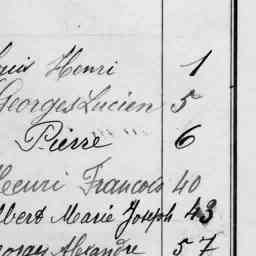 Louis Henri 1
Georges Lucien 5
Pierre " " " 6
Henri Francois 40
Albert Marie Joseph 43
Georges Alexandre 57